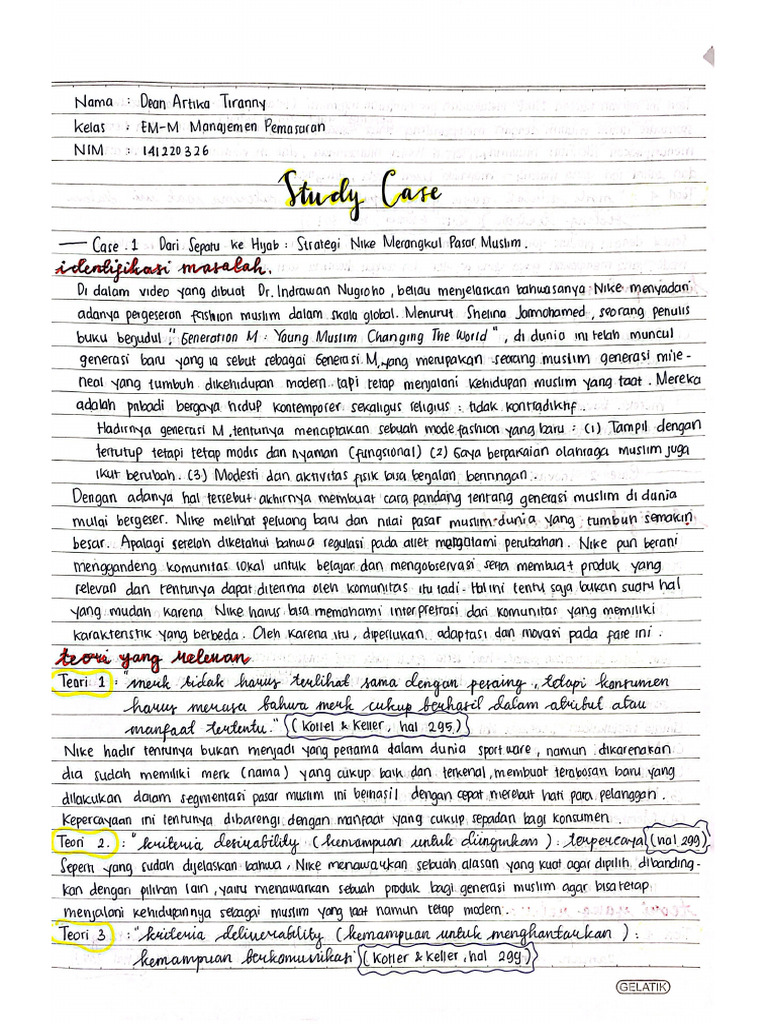 Nama : Dean Artika Tiranny
Kelas : EM-M Manajemen Pemasaran
NIM : 141220326
Study Case
— Case .1 Dari Sepatu ke Hijab : Strategi Nike Merangkul Pasar Muslim.
identifikasi masalah.
Di dalam video yang dibuat Dr. Indrawan Nugroho, beliau menjelaskan bahwasanya Nike menyadari
adanya pergeseran fashion muslim dalam skala global. Menurut Shelina Janmohamed, seorang penulis
buku berjudul, "Generation M : Young Muslim Changing The World", di dunia ini telah muncul
generasi baru yang ia sebut sebagai Generasi M, yang merupakan seorang muslim generasi mile-
neal yang tumbuh dikehidupan modern tapi tetap menjalani kehidupan muslim yang taat. Mereka
adalah pribadi bergaya hidup kontemporer sekaligus religius : tidak kontradiktif.
Hadirnya generasi M, tentunya menciptakan sebuah mode fashion yang baru : (1) Tampil dengan
tertutup tetapi tetap modis dan nyaman (fungsional) (2) Gaya berpakaian olahraga muslim juga
ikut berubah. (3) Modesti dan aktivitas fisik bisa berjalan beriringan.
Dengan adanya hal tersebut akhirnya membuat cara pandang tentang generasi muslim di dunia
mulai bergeser. Nike melihat peluang baru dan nilai pasar muslim dunia yang tumbuh semakin
besar. Apalagi setelah diketahui bahwa regulasi pada atlet mengalami perubahan. Nike pun berani
menggandeng komunitas lokal untuk belajar dan mengobservasi serta membuat produk yang
relevan dan tentunya dapat diterima oleh komunitas itu tadi. Hal ini tentu saja bukan suatu hal
yang mudah karena Nike harus bisa memahami interpretasi dari komunitas yang memiliki
karakteristik yang berbeda. Oleh karena itu, diperlukan adaptasi dan inovasi pada fase ini.
teori yang relevan
Teori 1 : "merk tidak harus terlihat sama dengan pesaing, tetapi konsumen
harus merasa bahwa merk cukup berhasil dalam atribut atau
manfaat tertentu." (Kotlel & Keller, hal 295)
Nike hadir tentunya bukan menjadi yang pertama dalam dunia sportware, namun dikarenakan
dia sudah memiliki merk (nama) yang cukup baik dan terkenal, membuat terobosan baru yang
dilakukan dalam segmentasi pasar muslim ini berhasil dengan cepat merebut hati para pelanggan.
Kepercayaan ini tentunya dibarengi dengan manfaat yang cukup sepadan bagi konsumen.
Teori 2. : "kriteria desirability (kemampuan untuk diinginkan) : terpercaya (hal 299).
Seperti yang sudah dijelaskan bahwa, Nike menawarkan sebuah alasan yang kuat agar dipilih dibanding-
kan dengan pilihan lain, yaitu menawarkan sebuah produk bagi generasi muslim agar bisa tetap
menjalani kehidupannya sebagai muslim yang taat namun tetap modern.
Teori 3 : "kriteria deliverability (kemampuan untuk menghantarkan) :
kemampuan berkomunikasi" (Kotler & Keller, hal 299)
GELATIK